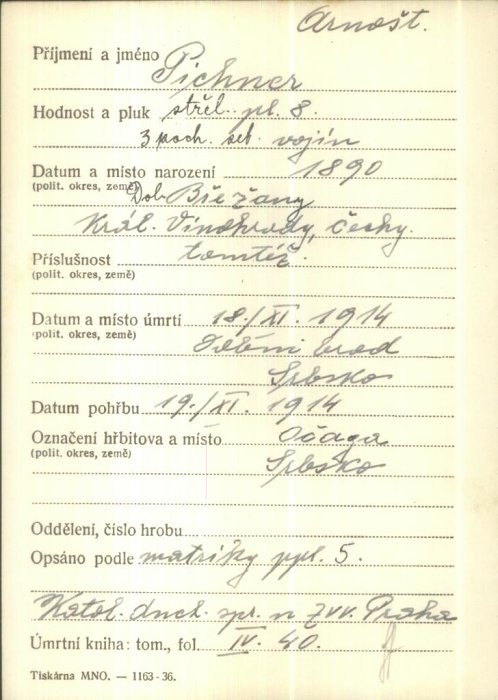 Arnošt.
Příjmení a jméno Pichner
Hodnost a pluk střel. pl. 8.
3 poch. set. vojín
Datum a místo narození 1890
(polit. okres, země) Dol. Břežany
Král. Vinohrady, Čechy.
Příslušnost tomtéž.
(polit. okres, země)
Datum a místo úmrtí 18./XI. 1914
(polit. okres, země) brod
Srbsko
Datum pohřbu 19./XI. 1914
Označení hřbitova a místo Očaga
(polit. okres, země) Srbsko
Oddělení, číslo hrobu
Opsáno podle matriky ppl. 5.
Katol. duch. spr. n ZVV. Praha
Úmrtní kniha: tom., fol. IV. 40.
Tiskárna MNO. — 1163-36.